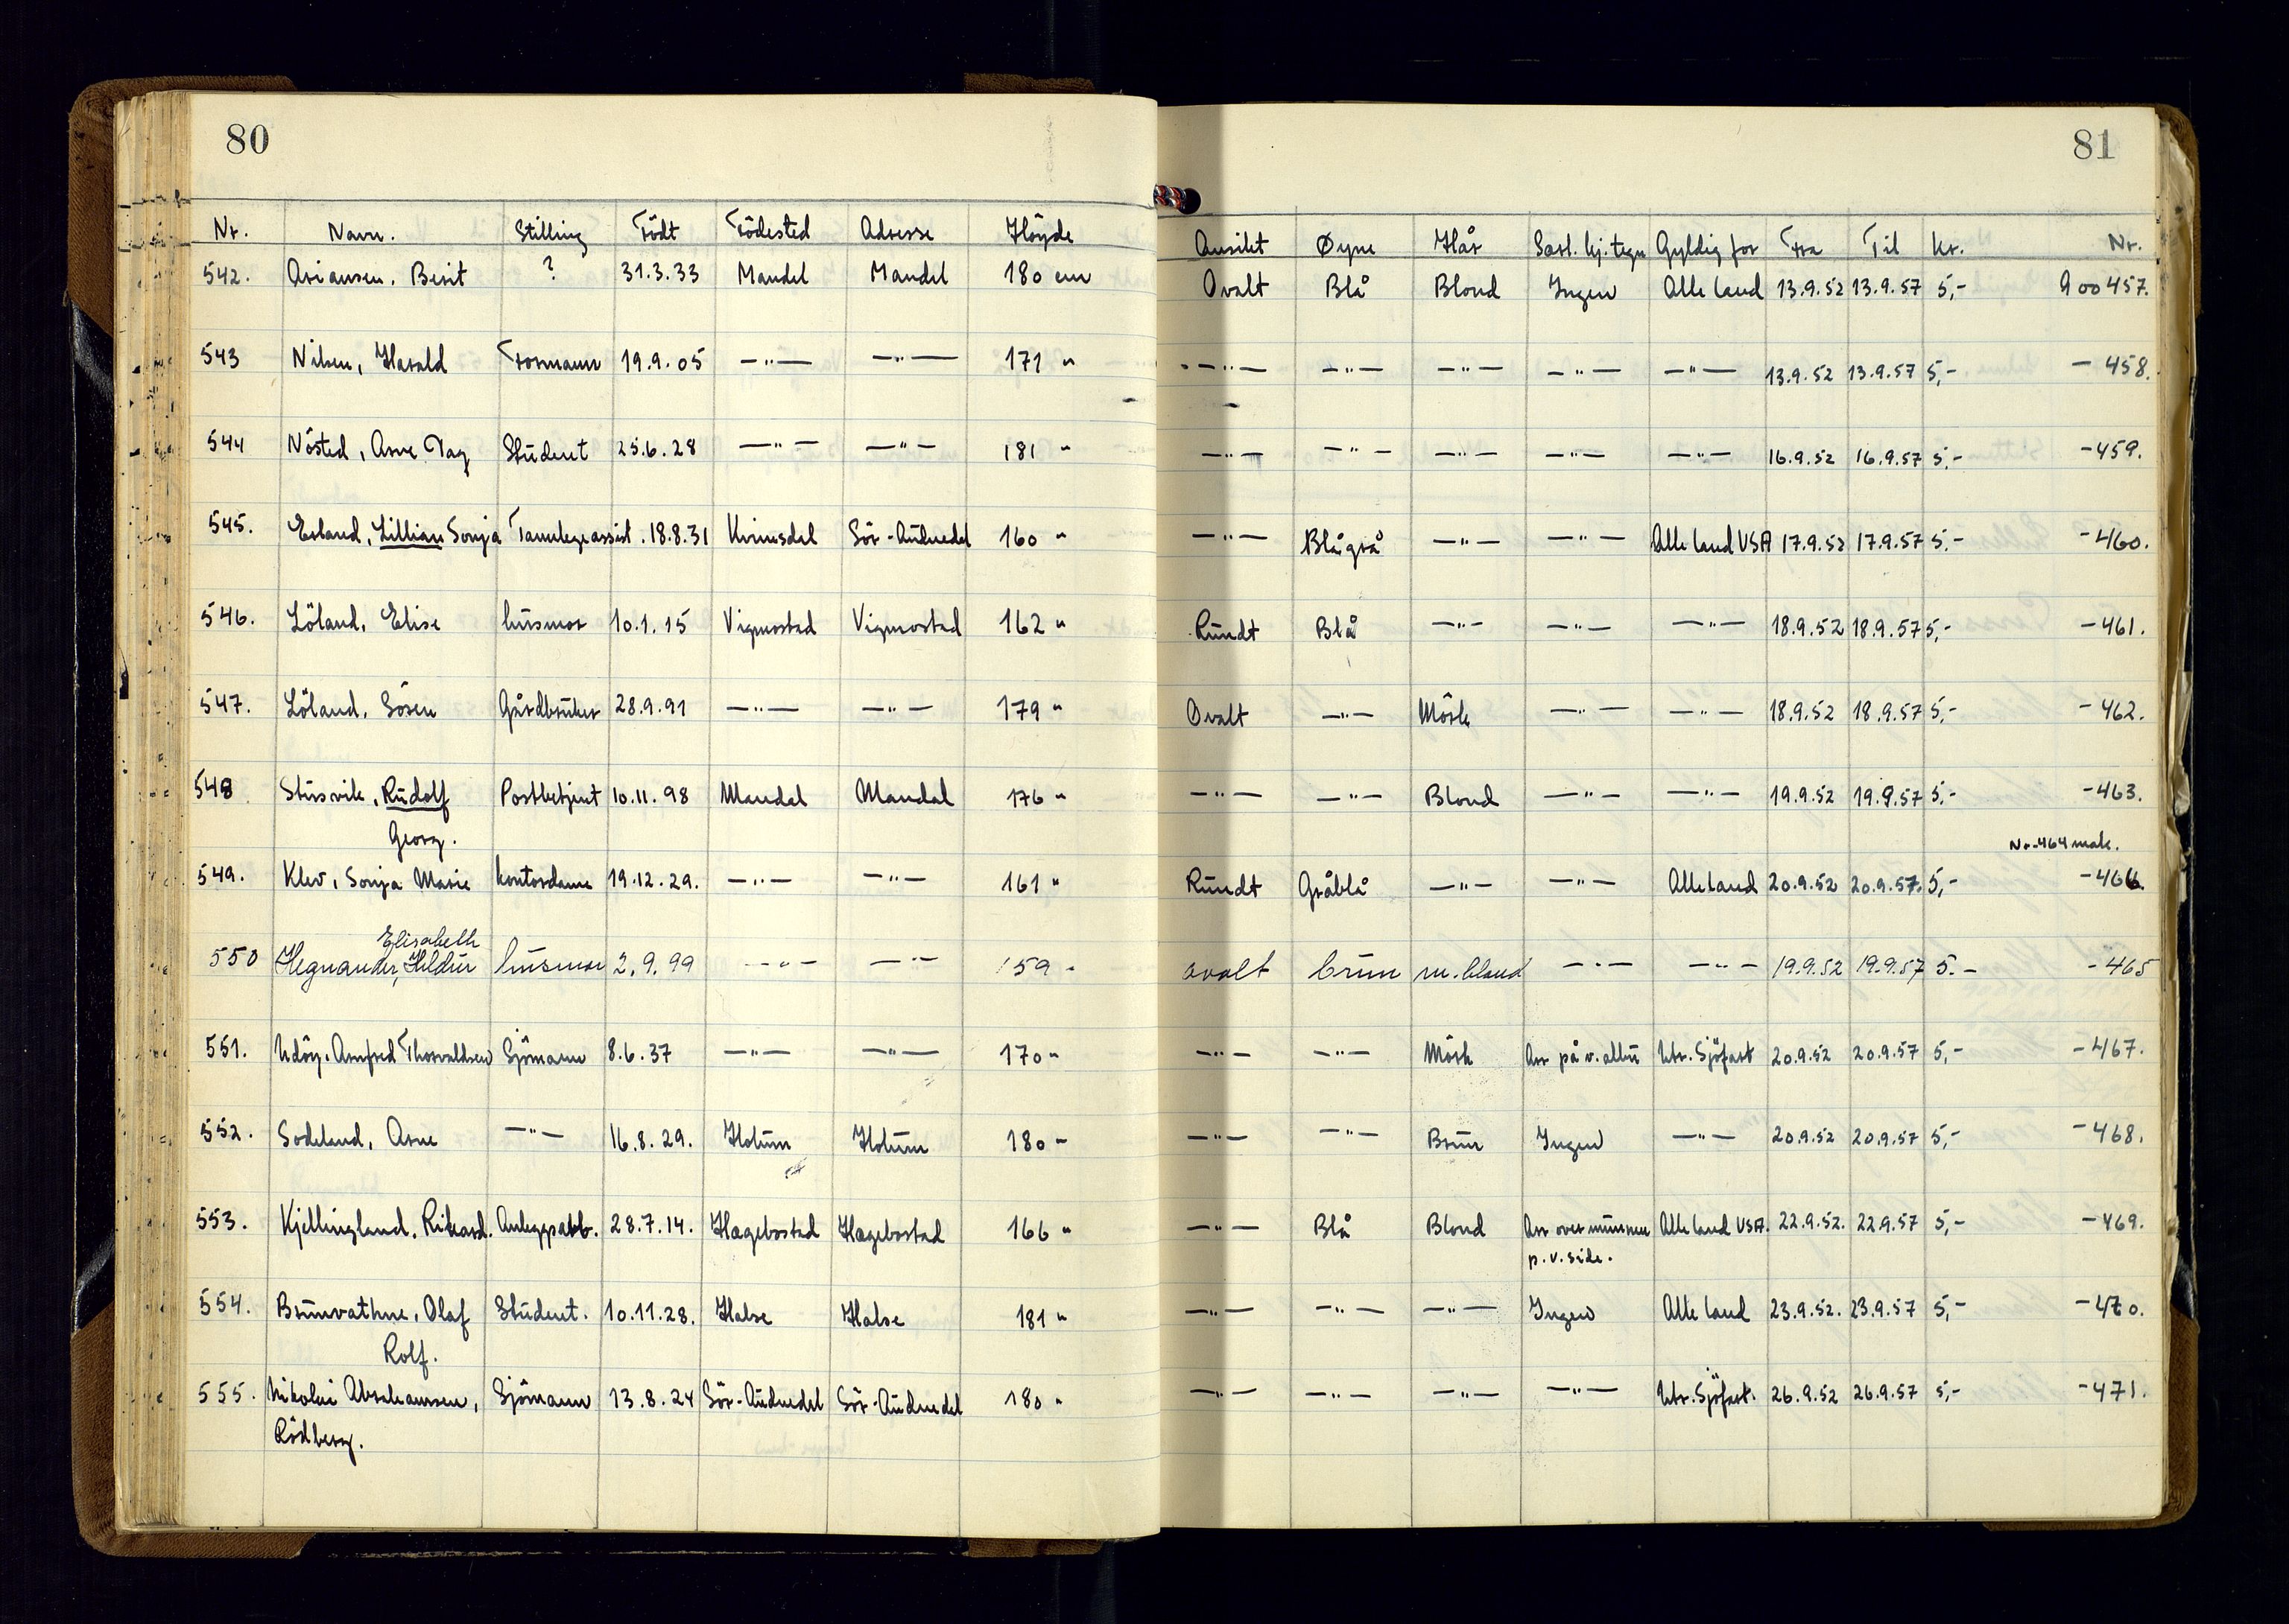 80
81
Nr. Navn. Stilling Födt Födested Adresse Höyde Ansikt Øyne Hår Særl. kj.tegn Gyldig for Fra Til Kr. Nr.
542. Ariansen, Berit ? 31.3.33 Mandal Mandal 180 cm Ovalt Blå Blond Ingen Alle land 13.9.52 13.9.57 5,- A 00457.
543 Nilsen, Harald Formann 19.9.05 -"- -"- 171 " -"- -"- -"- -"- -"- 13.9.52 13.9.57 5,- - 458.
544 Nösted, Arne Dag Student 25.6.28 -"- -"- 181 " -"- -"- -"- -"- -"- 16.9.52 16.9.57 5,- - 459.
545. Erland, Lillian Sonja Tannlegeassist. 18.8.31 Kvinesdal Sör-Audnedal 160 " -"- Blågrå -"- -"- Alle land USA 17.9.52 17.9.57 5,- - 460.
546. Löland, Elise husmor 10.1.15 Vigmostad Vigmostad 162 " Rundt Blå -"- -"- -"- 18.9.52 18.9.57 5,- - 461.
547. Löland, Sören Gårdbruker 28.9.91 -"- -"- 179 " Ovalt -"- Mörk -"- -"- 18.9.52 18.9.57 5,- - 462.
548 Stusvik, Rudolf Postbetjent 10.11.98 Mandal Mandal 176 " -"- -"- Blond -"- -"- 19.9.52 19.9.57 5,- - 463.
Georg.
Nr. 464 mak.
549. Klev, Sonja Marie kontordame 19.12.29. -"- -"- 161 " Rundt Gråblå -"- -"- Alle land 20.9.52 20.9.57. 5,- - 466.
Elisabeth
550 Hegnander, Hildur husmor 2.9.99 -"- -"- 159 " ovalt brun m.blond -"- -"- 19.9.52 19.9.57 5.- - 465
551. Udöy. Arnfred Thorvaldsen Sjömann 8.6.37 -"- -"- 170 " -"- -"- Mörk Arr på v. albu Utr. Sjöfart 20.9.52 20.9.57 5,- - 467.
552. Sodeland, Arne -"- 16.8.29. Holum Holum 180 " -"- -"- Brun Ingen -"- 20.9.52 20.9.57 5,- - 468.
553. Kjellingland. Rikard. Anleggsarb. 28.7.14. Hægebostad Hægebostad 166 " -"- Blå Blond Arr over munnen Alle land USA. 22.9.52. 22.9.57 5,- - 469.
p.v. side.
554. Brunvathne, Olaf Student. 10.11.28. Halse Halse 181 " -"- -"- -"- Ingen Alle land 23.9.52. 23.9.57 5,- - 470.
Rolf.
555. Nikolai Abrahamsen, Sjömann 13.8.24 Sör-Audnedal Sör-Audnedal 180 " -"- -"- -"- -"- Utr. Sjöfart. 26.9.52 26.9.57 5,- - 471.
Rödberg.